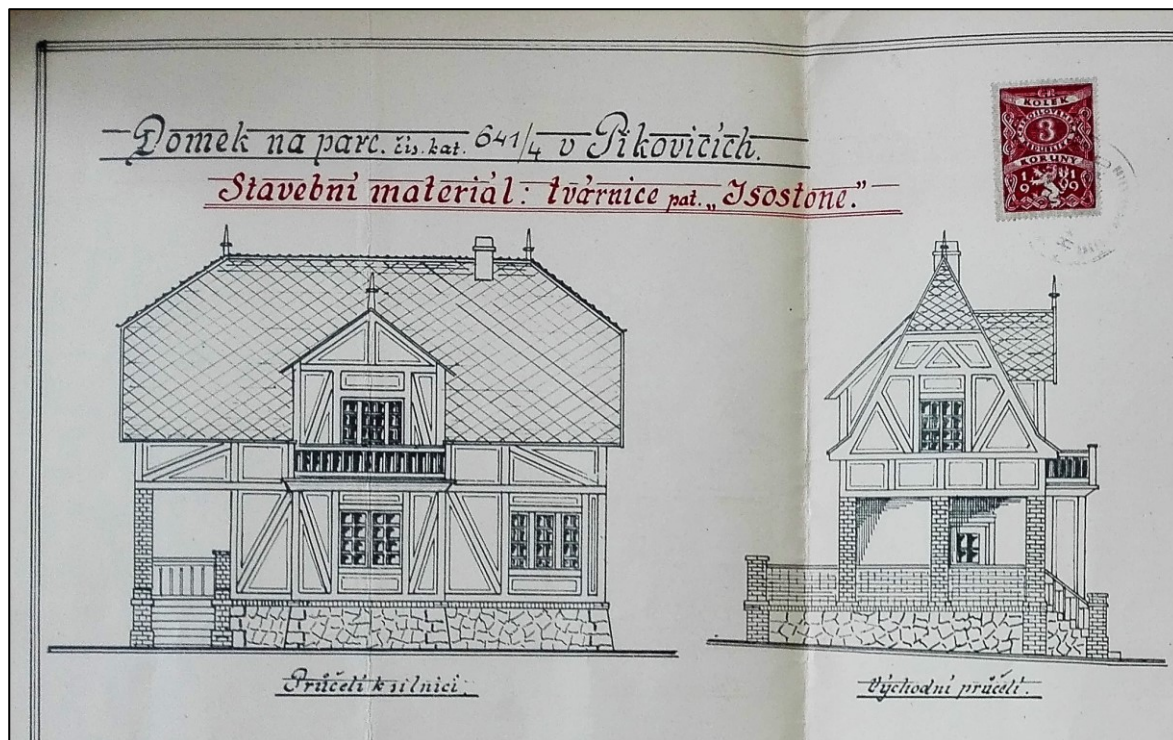 Domek na parc. čís. kat. 641/4 v Pikovicích.
Stavební materiál: tvárnice pat. „Isostone."
KOLEK
3
KORUNY
1919
Průčelí k silnici.
Východní průčelí.